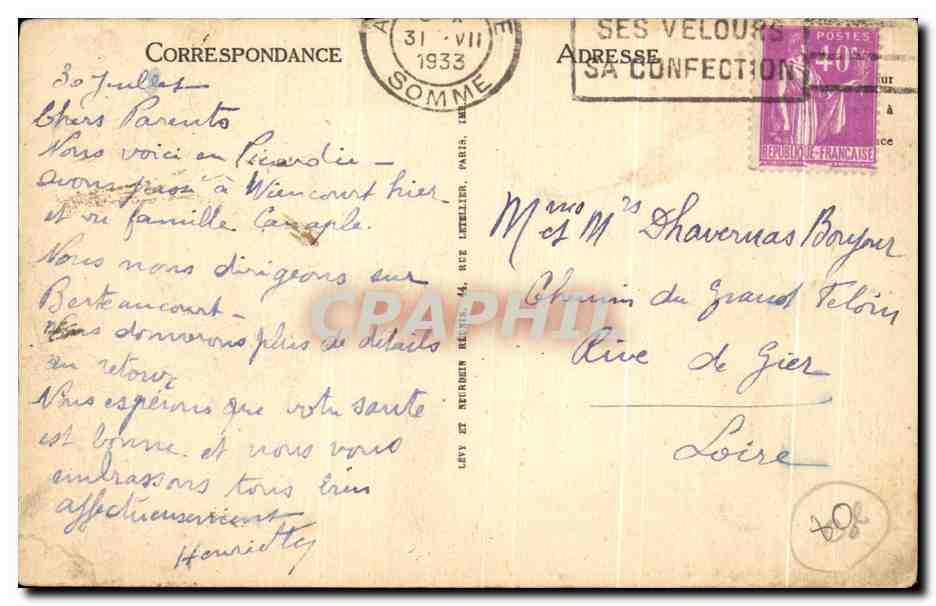 CORRESPONDANCE
30 Juillet
Chers Parents
Nous voici en Picardie -
avons passé à Wiencourt hier
et vu famille Canaple.
Nous nous dirigeons sur
Berteaucourt -
Vous donnerons plus de détails
au retour
Nous espérons que votre santé
est bonne et nous vous
embrassons tous bien
affectueusement
Henriette
31 VII
1933
SOMME
SES VELOURS
SA CONFECTION
ADRESSE
POSTES
40c
REPUBLIQUE-FRANCAISE
LÉVY ET NEURDEIN RÉUNIS, 44, RUE LETELLIER, PARIS, IMP
Mme et Mrs Dhavernas Bonjour
Chemin du Grand Felóin
Rive de Gier
Loire
CPAPHIL